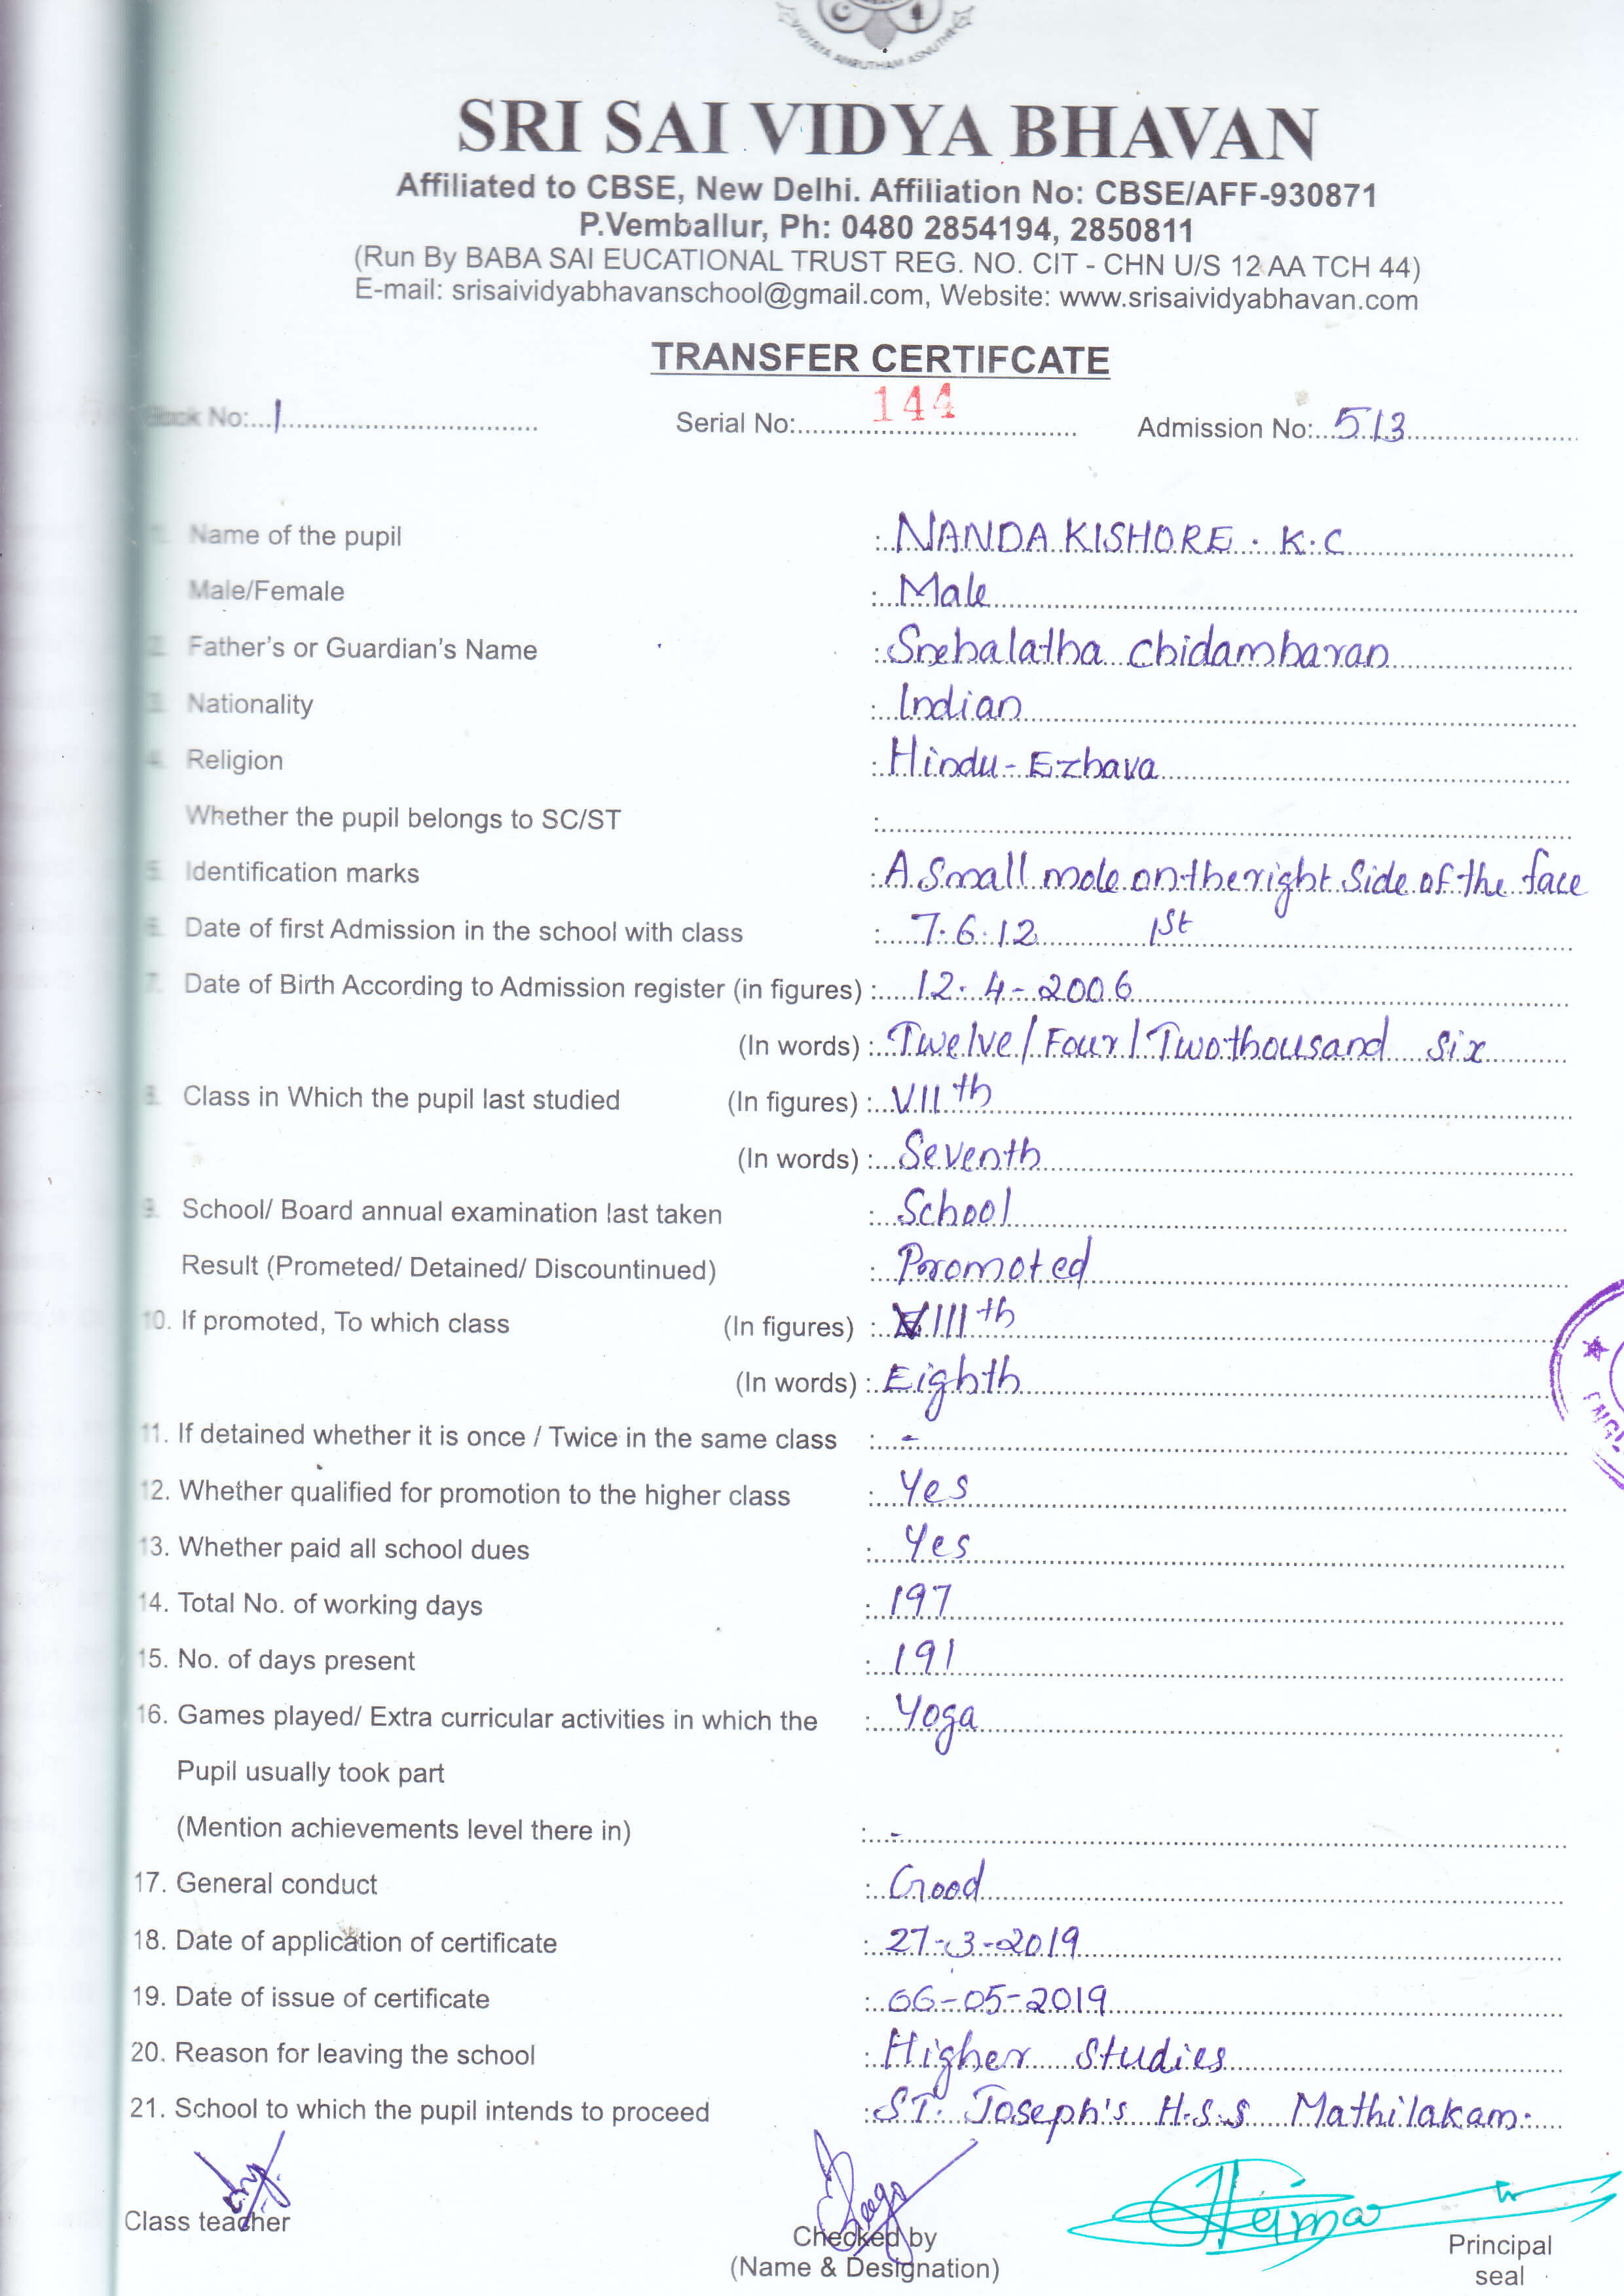 VIDYAYA AMRUTHAM ASNUTHE
SRI SAI VIDYA BHAVAN
Affiliated to CBSE, New Delhi. Affiliation No: CBSE/AFF-930871
P.Vemballur, Ph: 0480 2854194, 2850811
(Run By BABA SAI EUCATIONAL TRUST REG. NO. CIT - CHN U/S 12 AA TCH 44)
E-mail: srisaividyabhavanschool@gmail.com, Website: www.srisaividyabhavan.com
TRANSFER CERTIFCATE
Book No:...1 Serial No: 144 Admission No: 513
1. Name of the pupil : NANDA KISHORE . K.C
Male/Female : Male
2. Father's or Guardian's Name : Snehalatha Chidambaran
3. Nationality : Indian
4. Religion : Hindu - Ezhava
Whether the pupil belongs to SC/ST :
5. Identification marks : A Small mole on the right Side of the face
6. Date of first Admission in the school with class : 7.6.12 1st
7. Date of Birth According to Admission register (in figures) : 12.4-2006
(In words) : Twelve / Four / Two thousand six
8. Class in Which the pupil last studied (In figures) : VII th
(In words) : Seventh
9. School/ Board annual examination last taken : School
Result (Prometed/ Detained/ Discountinued) : Promoted
10. If promoted, To which class (In figures) : VIII th
(In words) : Eighth
11. If detained whether it is once / Twice in the same class : -
12. Whether qualified for promotion to the higher class : Yes
13. Whether paid all school dues : Yes
14. Total No. of working days : 197
15. No. of days present : 191
16. Games played/ Extra curricular activities in which the : Yoga
Pupil usually took part
(Mention achievements level there in) : -
17. General conduct : Good
18. Date of application of certificate : 27-3-2019
19. Date of issue of certificate : 06-05-2019
20. Reason for leaving the school : Higher Studies
21. School to which the pupil intends to proceed : ST. Joseph's H.S.S Mathilakam.
Class teacher
Checked by
(Name & Designation)
Principal
seal